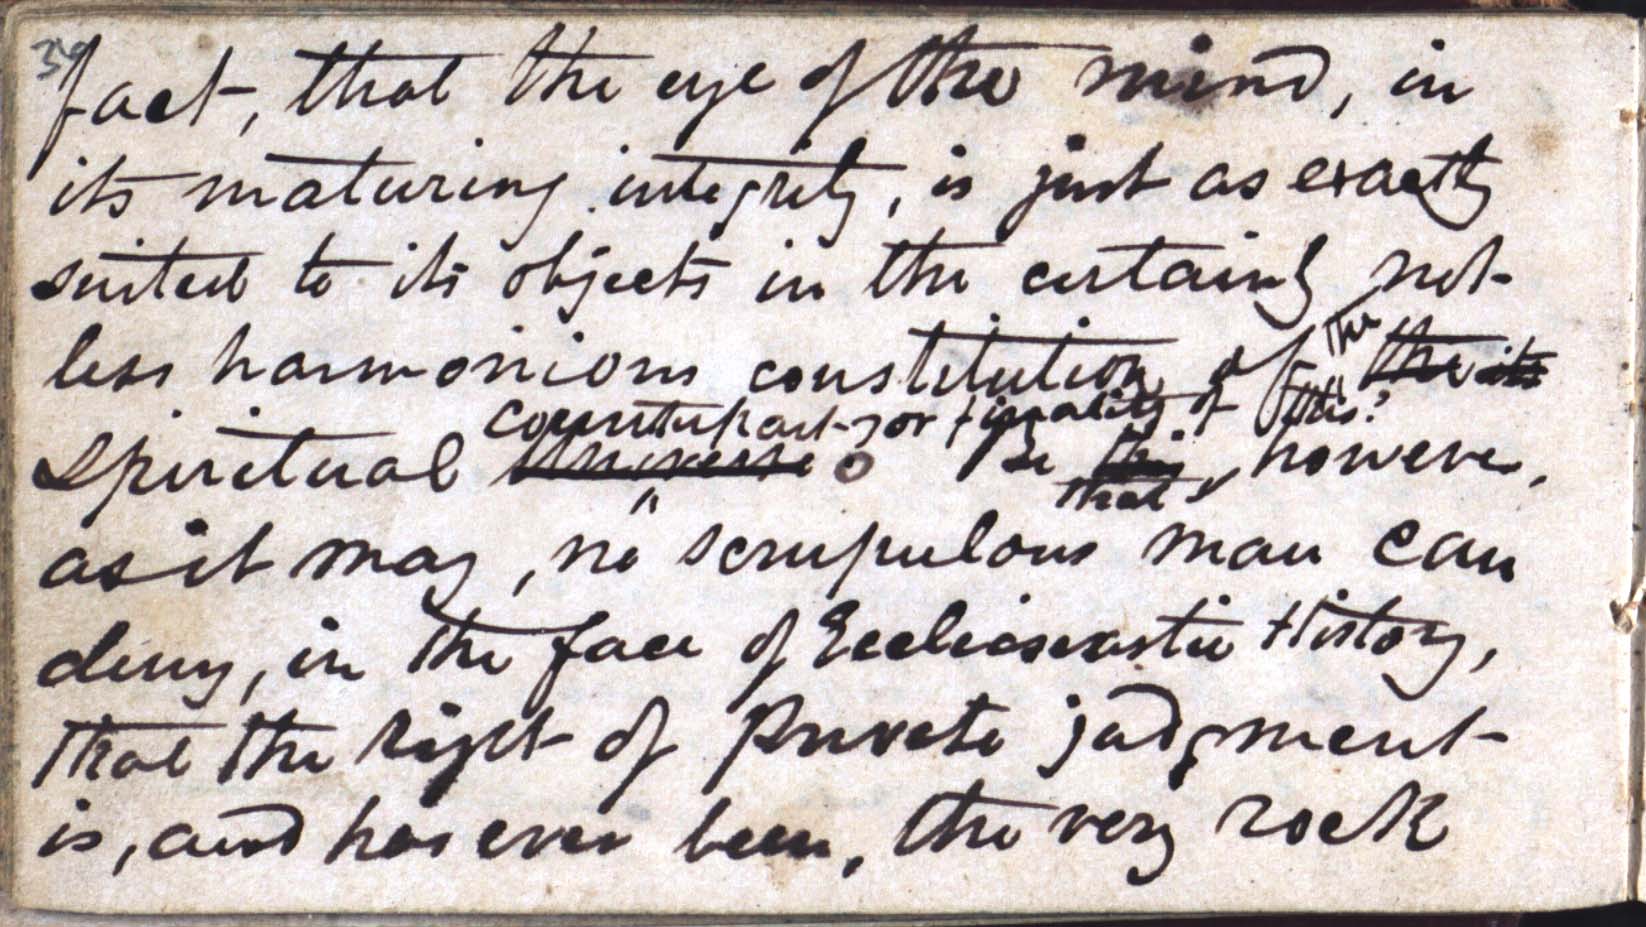 fact, that the eye of the mind, in
its maturing integrity, is just as exactly
suited to its objects in the certainly not
less harmonious constitution of the
counterpart, or finality of this?
spiritual universe. Be that, however,
as it may, no scrupulous man can
deny, in the face of Ecclesiastic History,
that the right of Private judgment
is, and has ever been, the very rock